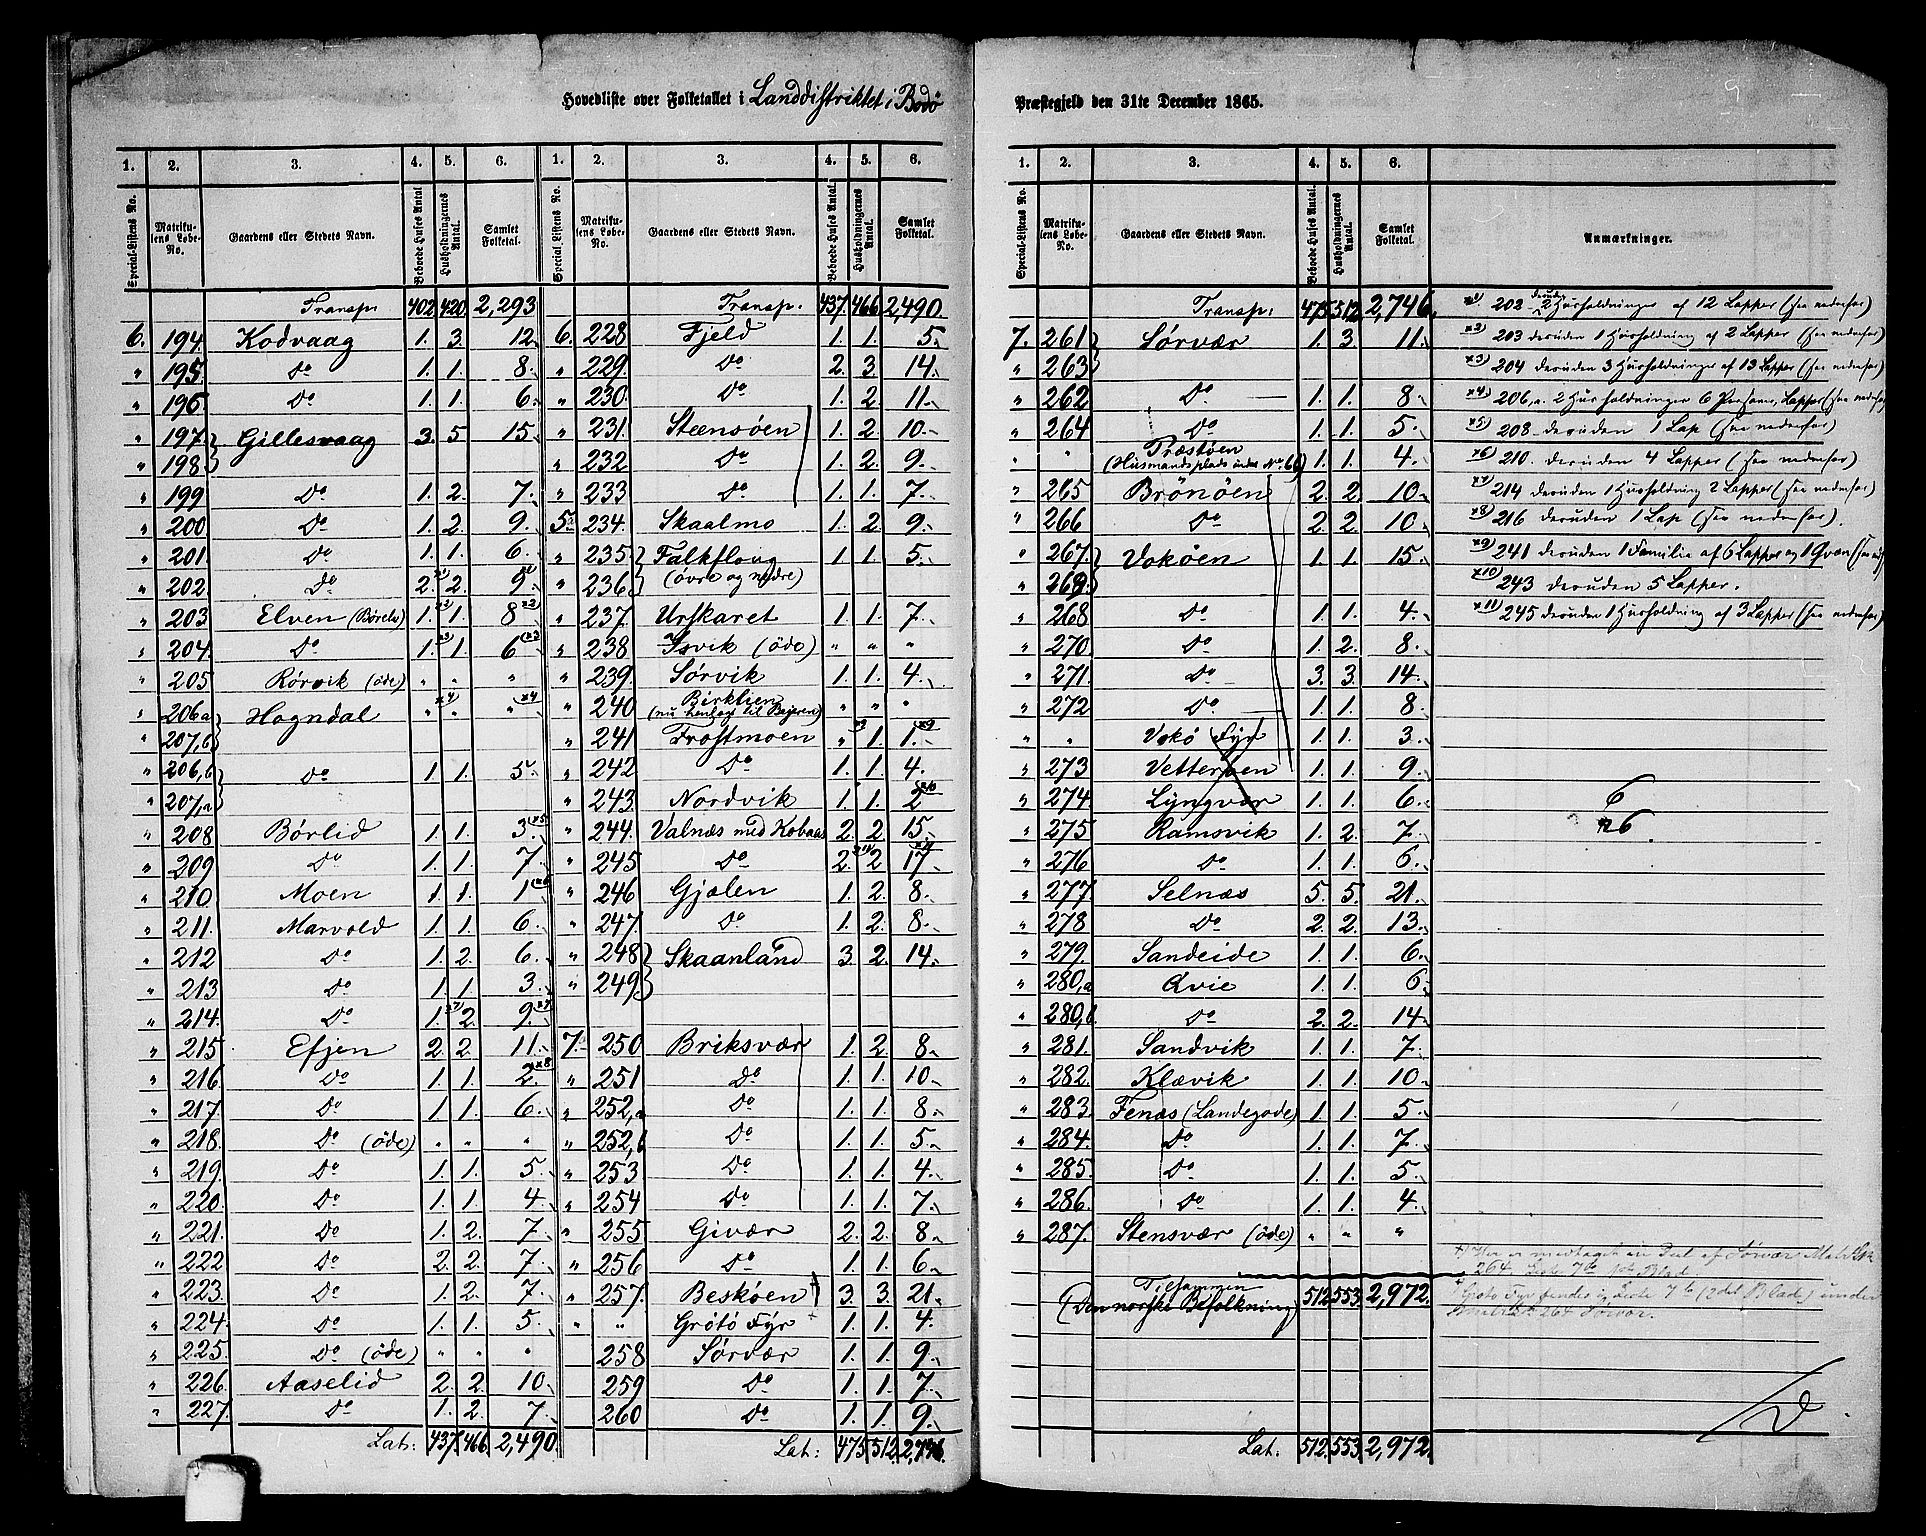 Hovedliste over Folketallet i Landdistriktet i Bodö
Præstegjeld den 31te December 1865.
9
1. 2. 3. 4. 5. 6. 1. 2. 3. 4. 5. 6.
Special-Listens No. Matrikulens Løbe-No. Gaardens eller Stedets Navn. Beboede Huses Antal Husholdningernes Antal. Samlet Folketal. Special Listens No. Matrikulens Løbe-No. Gaardens eller Stedets Navn. Beboede Huses Antal. Husholdningernes Antal. Samlet Folketal.
Transp: 402 420. 2,293
6. 194. Kodvaag 1. 3. 12.
" 195. Do 1. 1. 8.
" 196. Do 1. 1. 6.
" 197. Gillesvaag 3. 5. 15.
" 198.
" 199 Do 1. 2. 7.
" 200 Do 1. 2. 9.
" 201. Do 1. 1. 6.
" 202. Do 2. x1) 2. 9. x1)
" 203 Elven (Børelv) 1. x2) 1. 8 x2)
" 204. Do 1. x3) 1. 6 (x3
" 205 Rørvik (öde) " " "
" 206a Hogndal " x4) " " x4
" 207,b
" 206,b Do 1. 1. 5.
" 207,a
" 208 Børlid 1. 1. 3. x5
" 209 Do 1. 1. 7.
" 210 Moen 1. 1. 1 (x6
" 211. Marvold 1. 1. 6.
" 212 Do 1. 2. 6.
" 213 Do 1. 1. 3.
" 214. Do 1. x7) 2. 9. x7
" 215 Efjen 2. 2. 11.
" 216. Do 1. 1. 2. x8
" 217. Do 1. 1. 6.
" 218. Do (öde) " " "
" 219. Do 1. 1. 5.
" 220. Do 1. 1. 4.
" 221. Do 1. 2. 7.
" 222 Do 2. 2. 7.
" 223. Do 1. 2. 7.
" 224. Do 1. 1. 5.
" 225. Do (öde) " " "
" 226. Aaselid 2. 2. 10.
" 227. Do 1. 2. 7.
Lat: 437. 466. 2,490
Transp: 437. 466 2,490.
6. 228. Fjeld 1. 1. 5.
" 229. Do 2. 3. 14.
" 230. Do 1. 2 11.
" 231. Steensöen 1. 2. 10.
" 232 Do 1. 2. 9.
" 233 Do 1. 1. 7.
5. 234. Skaalmo 1. 2. 9.
" 235 Falkfloug 1. 1. 5.
" 236 (övre og nedre)
" 237. Urskaret 1. 1. 7.
" 238 Isvik (öde) " " "
" 239. Sørvik 1. 1. 4.
" 240 Birklien (nu henlagt til Bejeren) " " "
" 241 Frostmoen " x9 1. 1. x9
" 242 Do 1. 1. 4.
" 243. Nordvik 1. 1. 2 x10
" 244. Valnæs med Kobaas 2. 2. 15.
" 245 Do 2. x11) 2 17 x11
" 246 Gjælen 1. 2. 8.
" 247. Do 1. 2. 8.
" 248 Skaanland 3. 2. 14.
" 249.
7. 250 Briksvær 1. 2. 8.
" 251 Do 1. 1. 10.
" 252,a Do 1. 1. 8.
" 252,b Do 1. 1. 5.
" 253 Do 1. 1. 4.
" 254 Do 1. 1. 7.
" 255 Givær 2. 2. 8
" 256. Do 1. 1. 6
" 257. Beskøen 3. 3. 21.
" " Grötö Fyr 1. 1. 4.
258 Sørvær 1. 1. 9.
259 Do 1. 1. 7.
260 Do 1. 1. 9.
Lat: 475 512. 2,746.
1. 2. 3. 4. 5. 6.
Special-Listens No. Matrikulens Løbe-No. Gaardens eller Stedets Navn. Beboede Huses Antal. Husholdningernes Antal. Samlet Folketal. Anmærkninger.
Transp: 475 512. 2,746.
7. 261 Sørvær 1. 3. 11.
" 263
" 262 Do 1. 1. 8.
" 264 Do 1. 1. 5.
" " Præstøen (Husmandsplads under No 60) 1. 1. 4.
" 265 Brönöen 2. 2. 10.
" 266 Do 2. 2. 10.
" 267. Vokøen 1. 1. 15.
" 269.
" 268 Do 1. 1. 4.
" 270 Do 1. 2. 8.
" 271. Do 3. 3. 14.
" 272 Do 1. 1. 8
" " Vokö Fyr 1. 1. 3.
" 273 Vetteröen 1. 1. 9.
" 274 Lyngvær 1. 1. 6.
" 275 Ramsvik 1. 2. 7.
" 276 Do 1. 1. 6.
" 277. Selnæs 5. 5. 21.
" 278 Do 2. 2. 13.
" 279. Sandeide 1. 1. 6.
" 280,a Qvie 1. 1. 6
" 280,b. Do 2. 2. 14
" 281. Sandvik 1. 1. 7.
" 282. Klævik 1. 1. 10.
" 283. Fenæs (Landegode) 1. 1. 5.
" 284. Do 1. 1. 7.
" 285. Do 1. 1. 5.
" 286. Do 1. 1. 4.
" 287. Stensvær (öde) " " "
Tilsammen (Den norske Befolkning) 512 553. 2,972.
Lat: 512. 553. 2,972.
x1) 202 desuden 2 Husholdninger af 12 Lapper (see nedenfor)
x2) 203 desuden 1 Husholdning af 2 Lapper (see nedenfor)
x3) 204 desuden 3 Husholdninger af 13 Lapper (see nedenfor)
x4) 206,a. 2 Husholdninger 6 Personer, Lapper (see nedenfor
x5) 208 desuden 1 Lap (see nedenfor)
x6) 210. desuden 4 Lapper (see nedenfor)
x7) 214 desuden 1 Husholdning 2 Lapper (see nedenfor)
x8) 216 desuden 1 Lap (see nedenfor).
x9) 241 desuden 1 Familie af 6 Lapper og 1 Qvæn (see
x10) 243 desuden 5 Lapper.
x11) 245 desuden 1 Husholdning af 3 Lapper (see nedenfor)
6
26.
+) Her er medtaget en Del af Sørvær Matr.
264. Liste 7b 1st Blad.
+ Grötö Fyr findes i Liste 7b (2det Blad) under
264 Sørvær.